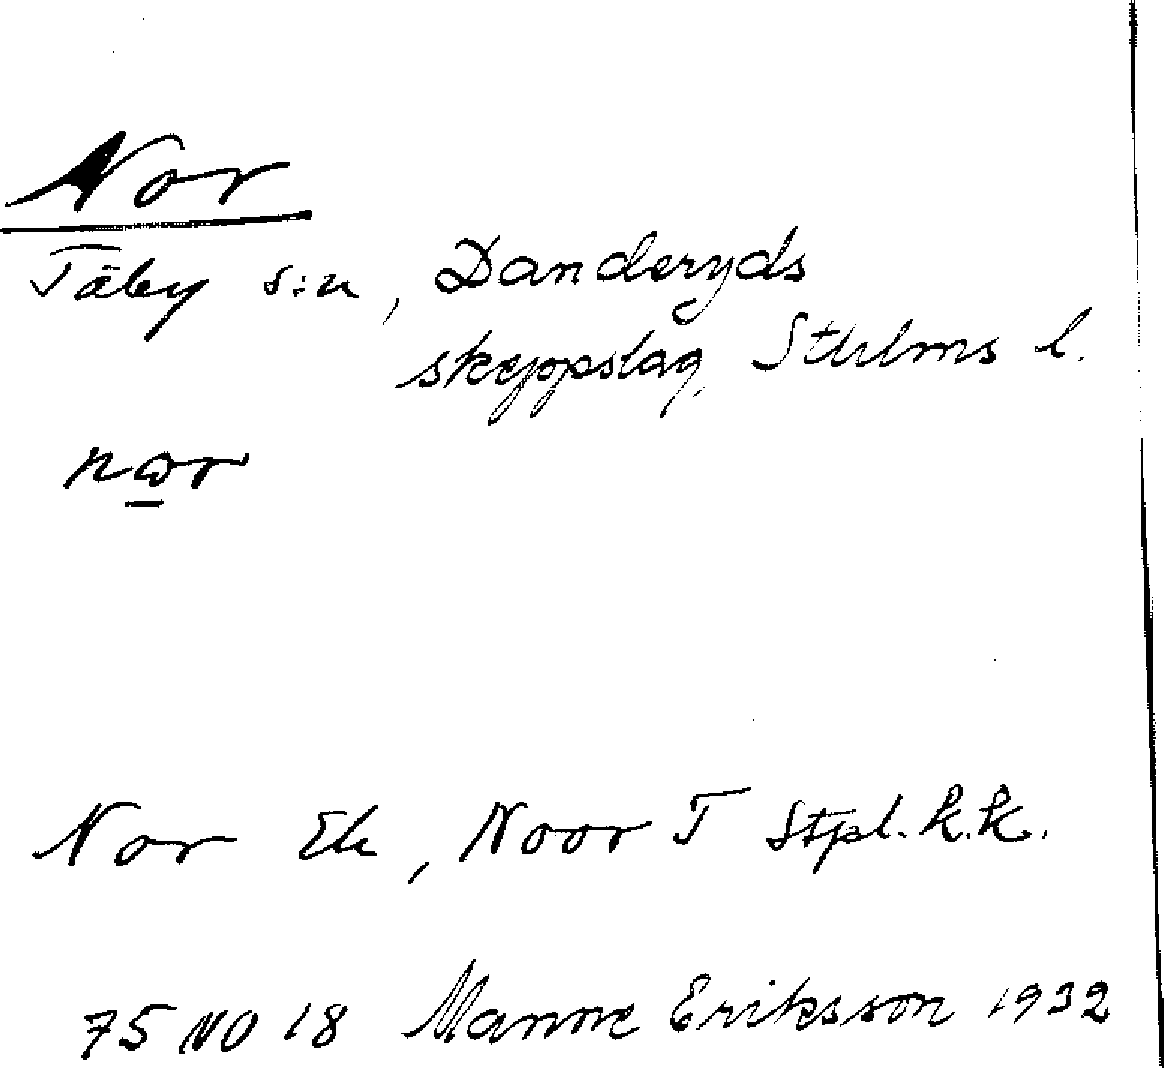 Nor
Täby s:n, Danderyds
skeppslag, Sthlms l.
nor
Nor Ek, Noor T Stpl. k.k.
75 NO 18 Manne Eriksson 1932